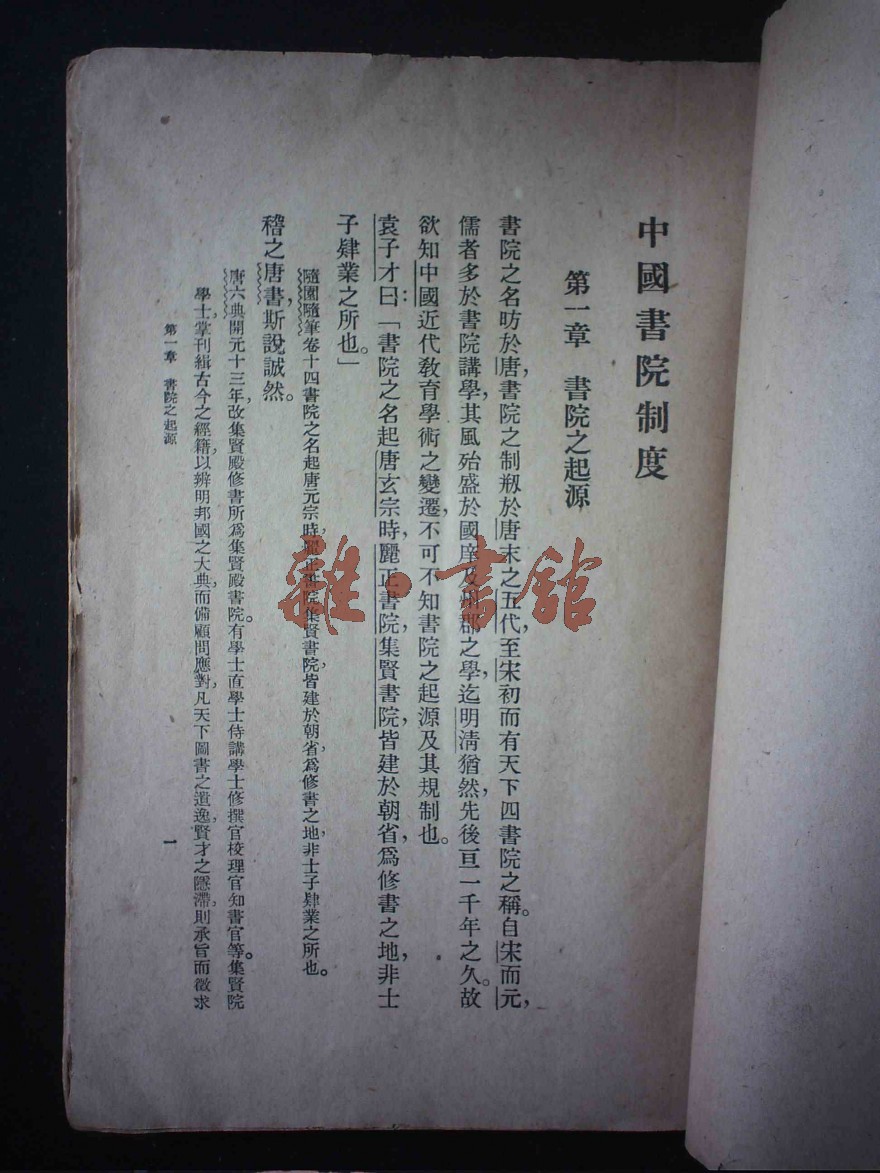 中國書院制度
第一章 書院之起源
書院之名昉於唐,書院之制剏於唐末之五代,至宋初而有天下四書院之稱。自宋而元,
儒者多於書院講學,其風殆盛於國庠及州郡之學,迄明淸猶然,先後亘一千年之久。故
欲知中國近代教育學術之變遷,不可不知書院之起源及其規制也。
袁子才曰:「書院之名起唐玄宗時,麗正書院,集賢書院,皆建於朝省,爲修書之地,非士
子肄業之所也。」
隨園隨筆卷十四書院之名起唐元宗時,麗正書院集賢書院皆建於朝省,爲修書之地,非士子肄業之所也。
稽之唐書,斯說誠然。
唐六典開元十三年,改集賢殿修書所爲集賢殿書院。有學士直學士侍講學士修撰官校理官知書官等。集賢院
學士,掌刊緝古今之經籍,以辨明邦國之大典,而備顧問應對,凡天下圖書之遺逸,賢才之隱滯,則承旨而徵求
第一章 書院之起源
一
雜·書館